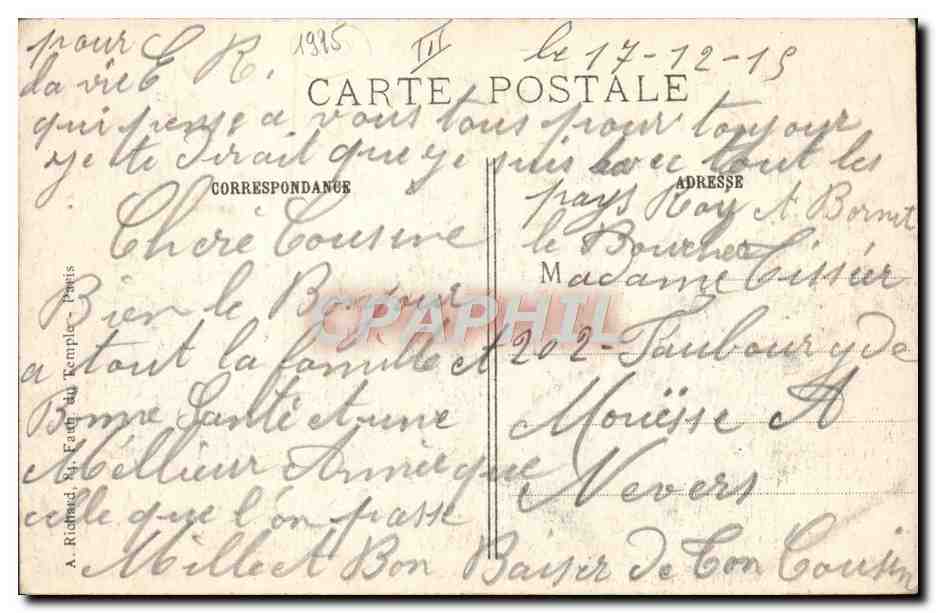 pour 1915 III le 17-12-15
la vie C R.
CARTE POSTALE
qui pense a vous tous pour toujour
je te dirait que je suis avec tout les
CORRESPONDANCE
ADRESSE
pays Roy A Bornet
le Boucher
Chére Cousine
Madame Tissier
Bien le Bonjour
a tout la famille et
202 - Faubourg de
Bonne Santé et une
Mouësse A
Meillieur Année que
Nevers
celle que l'on passe
Mille et Bon Baiser de Ton Cousin
A. Richard, 84, Faub. du Temple - Paris
CPAPHIL